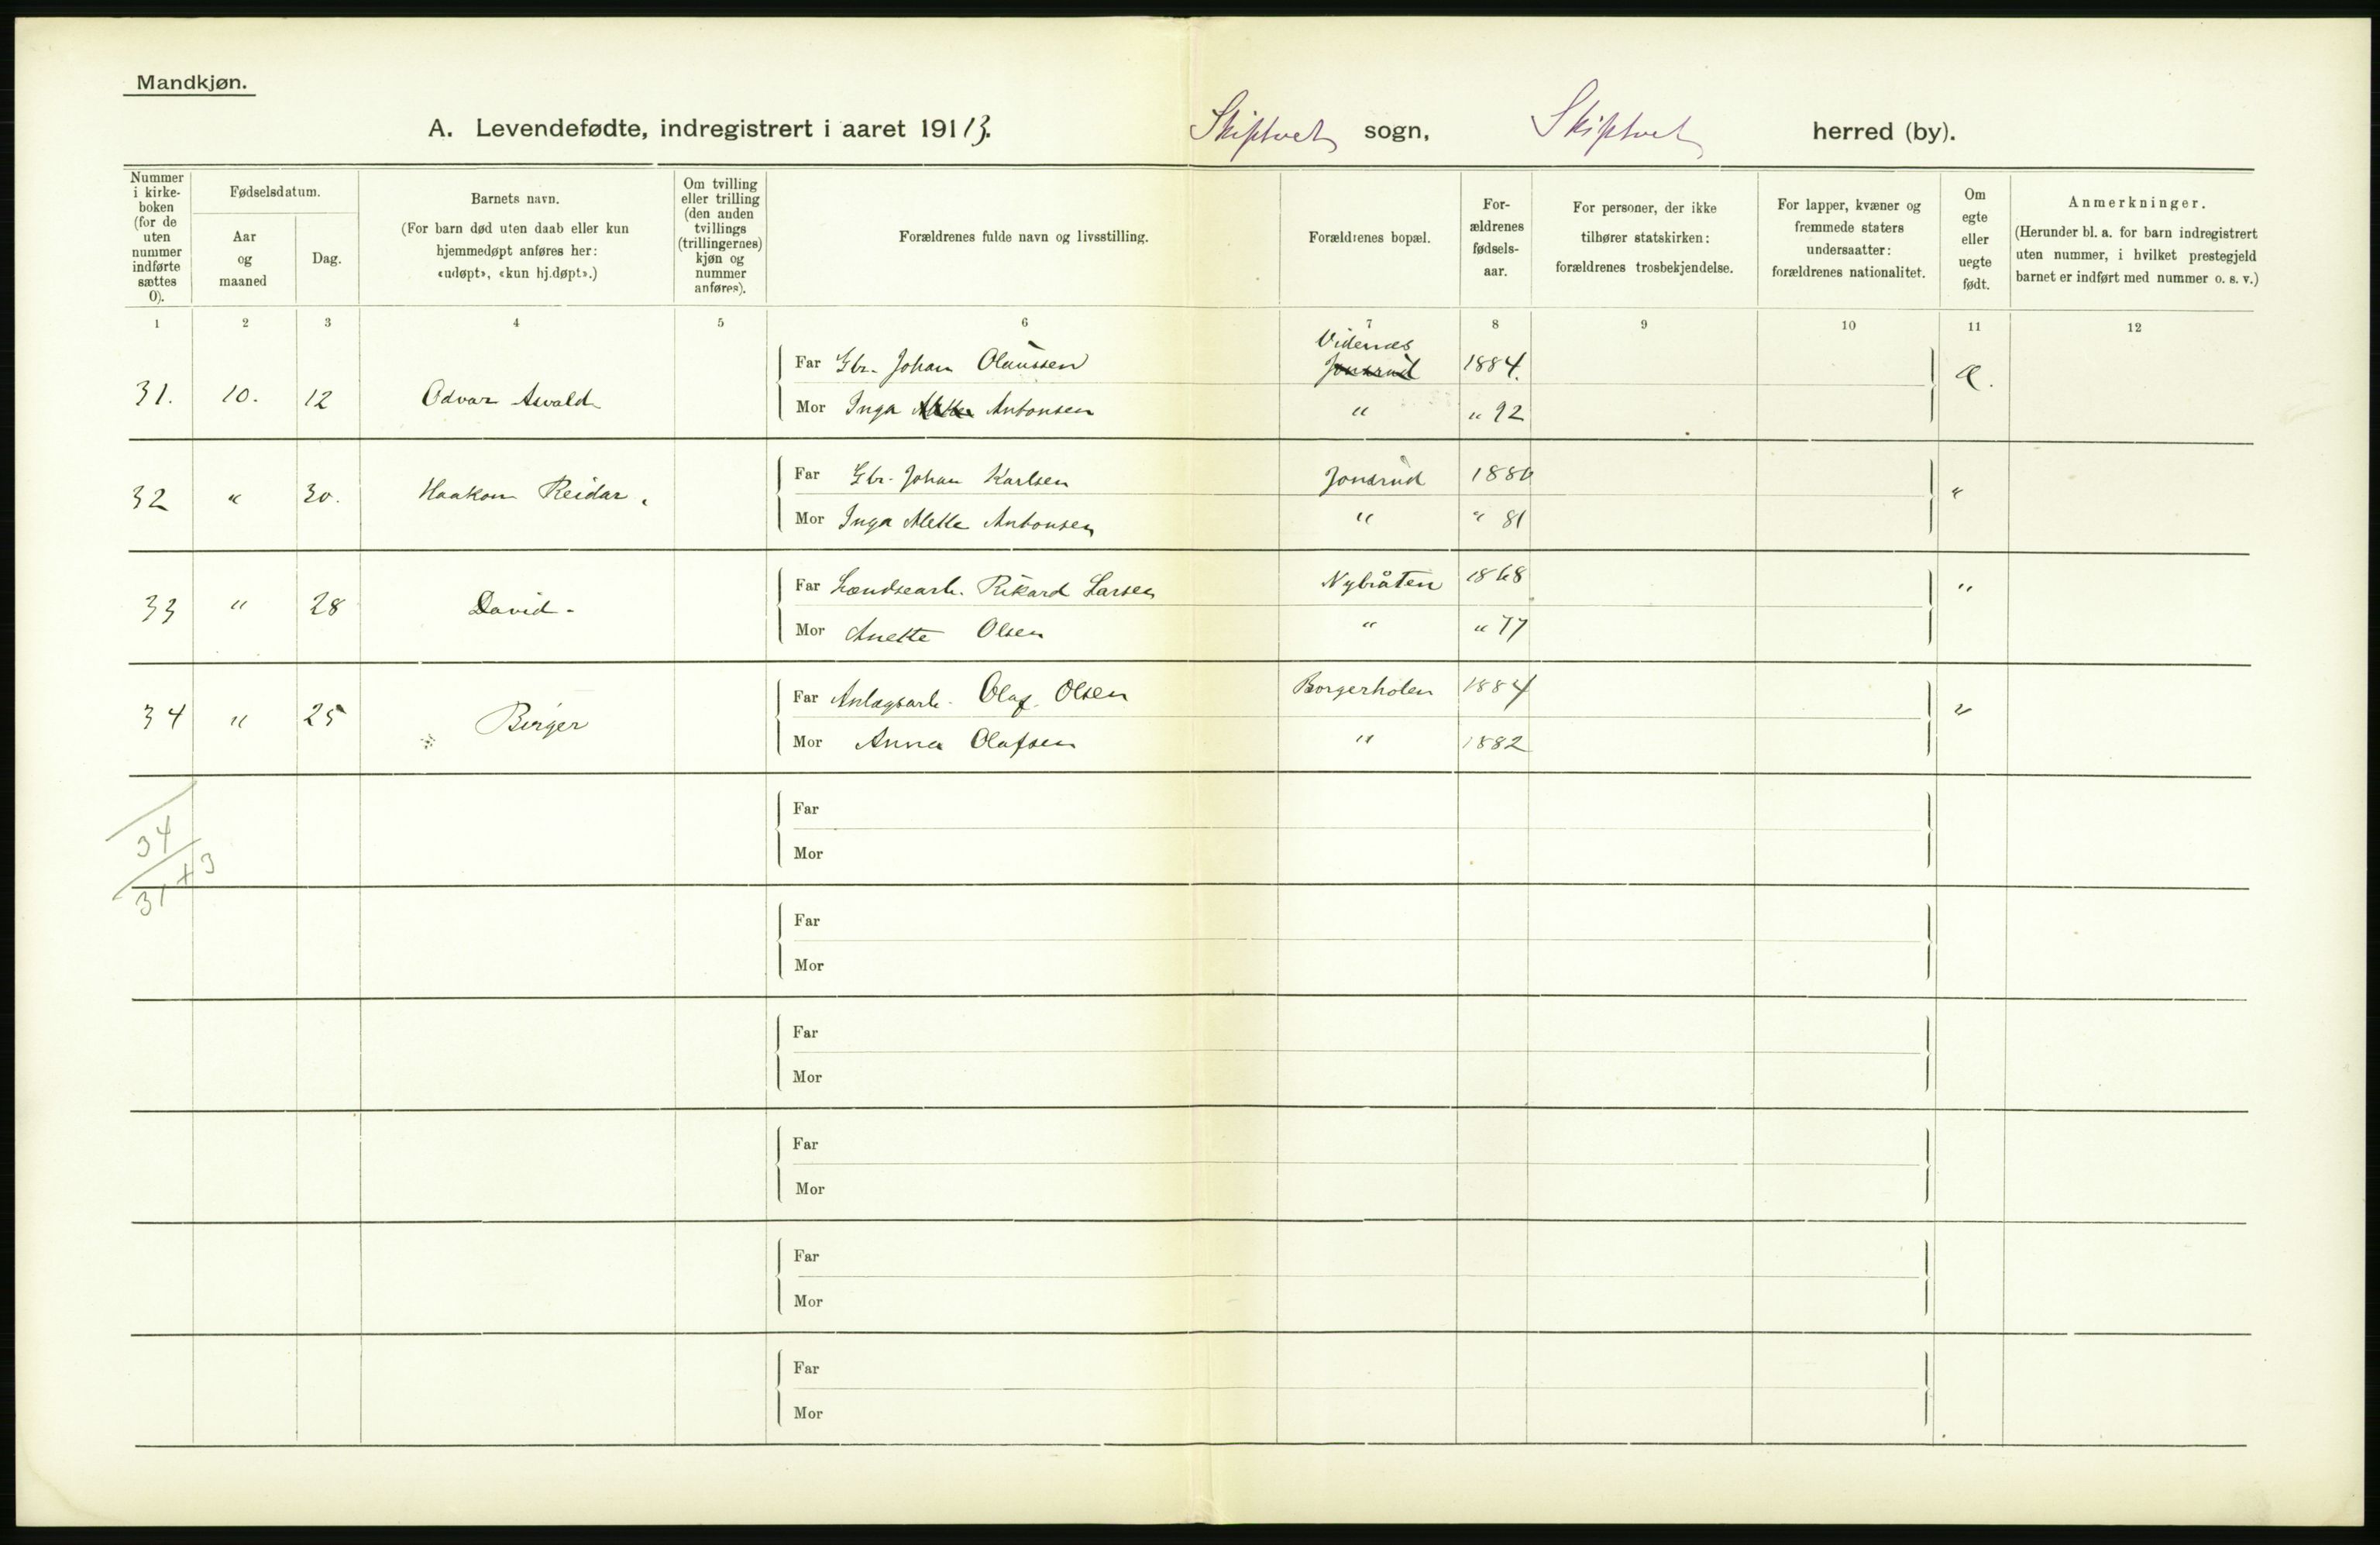 Mandkjøn.
A. Levendefødte, indregistrert i aaret 19113. Skiptvet sogn, Skiptvet herred (by).
Nummer i kirke-boken (for de uten nummer indførte sættes 0).
Fødselsdatum.
Aar og maaned
Dag.
Barnets navn.
(For barn død uten daab eller kun hjemmedøpt anføres her: «udøpt», «kun hj.døpt».)
Om tvilling eller trilling (den anden tvillings (trillingernes) kjøn og nummer anføres).
Forældrenes fulde navn og livsstilling.
Forældrenes bopæl.
For-ældrenes fødsels-aar.
For personer, der ikke tilhører statskirken: forældrenes trosbekjendelse.
For lapper, kvæner og fremmede staters undersaatter: forældrenes nationalitet.
Om egte eller uegte født.
Anmerkninger.
(Herunder bl. a. for barn indregistrert uten nummer, i hvilket prestegjeld barnet er indført med nummer o. s. v.)
1 2 3 4 5 6 7 8 9 10 11 12
Videnæs
31. 10. 12 Odvar Asvald Far Gbr. Johan Olaussen Jonsrud 1884. Æ.
Mor Inga Mette Antonsen " " 92
32 " 30. Haakon Reidar. Far Gbr. Johan Karlsen Jonsrud 1880 "
Mor Inga Mette Antonsen " " 81
33 " 28 David - Far Lændsearb. Rikard Larsen Nybråten 1868 "
Mor Anette Olsen " " 77
34 " 25 Birger Far Anlægsarb. Olaf Olsen Borgerholen 1884 "
Mor Anna Olafsen " 1882
34
31 + 3
Far
Mor
Far
Mor
Far
Mor
Far
Mor
Far
Mor
Far
Mor